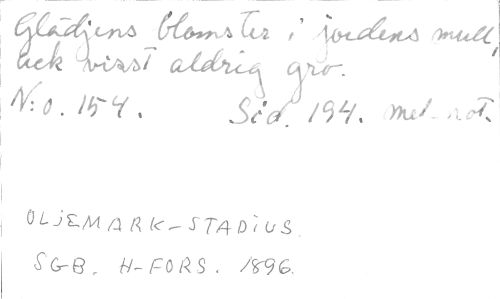 Glädjens blomster i jordens mull,
ack visst aldrig gro.
N:o. 154. Sid. 194. med not.
OLJEMARK-STADIUS.
SGB. H-FORS. 1896.